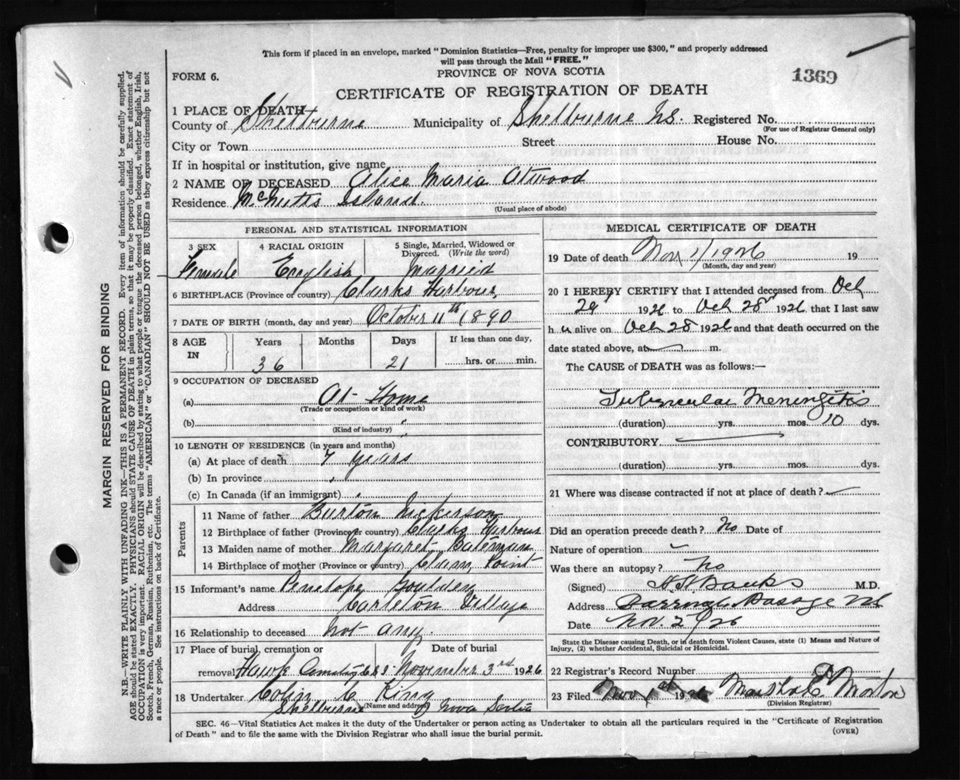 This form if placed in an envelope, marked "Dominion Statistics—Free, penalty for improper use $300," and properly addressed
will pass through the Mail "FREE."
FORM 6.
PROVINCE OF NOVA SCOTIA
1369
CERTIFICATE OF REGISTRATION OF DEATH
1 PLACE OF DEATH
County of Shelburne Municipality of Shelburne NS. Registered No.
(For use of Registrar General only)
City or Town Street House No.
If in hospital or institution, give name
2 NAME OF DECEASED Alice Maria Atwood
Residence McNutts Island.
(Usual place of abode)
PERSONAL AND STATISTICAL INFORMATION
3 SEX 4 RACIAL ORIGIN 5 Single, Married, Widowed or
Divorced. (Write the word)
Female English Married
6 BIRTHPLACE (Province or country) Clarks Harbour,
7 DATE OF BIRTH (month, day and year) October 11th 1890
8 AGE IN Years Months Days If less than one day,
36 21 hrs. or min.
9 OCCUPATION OF DECEASED
(a) At Home
(Trade or occupation or kind of work)
(b)
(Kind of industry)
10 LENGTH OF RESIDENCE (in years and months)
(a) At place of death 7 years
(b) In province
(c) In Canada (if an immigrant)
Parents
11 Name of father Burton Nickerson
12 Birthplace of father (Province or country) Clarks Harbour
13 Maiden name of mother Margaret
14 Birthplace of mother (Province or country) Point
15 Informant's name Penelope Goulden
Address Carleton Village
16 Relationship to deceased not any.
17 Place of burial, cremation or Date of burial
removal Hawk Cemetery November 3rd 1926
18 Undertaker Colin C King
Shelburne (Name and address) Nova Scotia
MEDICAL CERTIFICATE OF DEATH
19 Date of death Nov 1/1926 19
(Month, day and year)
20 I HEREBY CERTIFY that I attended deceased from Oct
1926 to Oct 28th 1926 that I last saw
h er alive on Oct 28 1926 and that death occurred on the
date stated above, at m.
The CAUSE of DEATH was as follows:—
Tubercular Meningitis
(duration) yrs. mos. 10 dys.
CONTRIBUTORY
(duration) yrs. mos. dys.
21 Where was disease contracted if not at place of death?
Did an operation precede death? No Date of
Nature of operation
Was there an autopsy? No
(Signed) H H Banks M.D.
Address Barrington Passage NS
Date Nov. 2/26
State the Disease causing Death, or in death from Violent Causes, state (1) Means and Nature of
Injury, (2) whether Accidental, Suicidal or Homicidal.
22 Registrar's Record Number
23 Filed Nov 1st 1926 Morton
(Division Registrar)
SEC. 46—Vital Statistics Act makes it the duty of the Undertaker or person acting as Undertaker to obtain all the particulars required in the "Certificate of Registration
of Death" and to file the same with the Division Registrar who shall issue the burial permit.
(OVER)
MARGIN RESERVED FOR BINDING
N.B.—WRITE PLAINLY WITH UNFADING INK—THIS IS A PERMANENT RECORD. Every item of information should be carefully supplied.
AGE should be stated EXACTLY. PHYSICIANS should STATE CAUSE OF DEATH in plain terms, so that it may be properly classified. Exact statement of
OCCUPATION is very important. RACIAL ORIGIN will be described by stating to what people or tongue the deceased person belonged, whether English, Irish,
Scotch, French, German, Russian, Ruthenian, etc. The terms "AMERICAN" or "CANADIAN" SHOULD NOT BE USED as they express citizenship but not
a race or people. See instructions on back of Certificate.